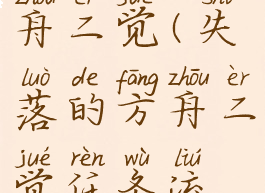 舟二觉(失
luò de fāng zhōu èr
落的方舟二
jué rèn wù liú
觉任务流